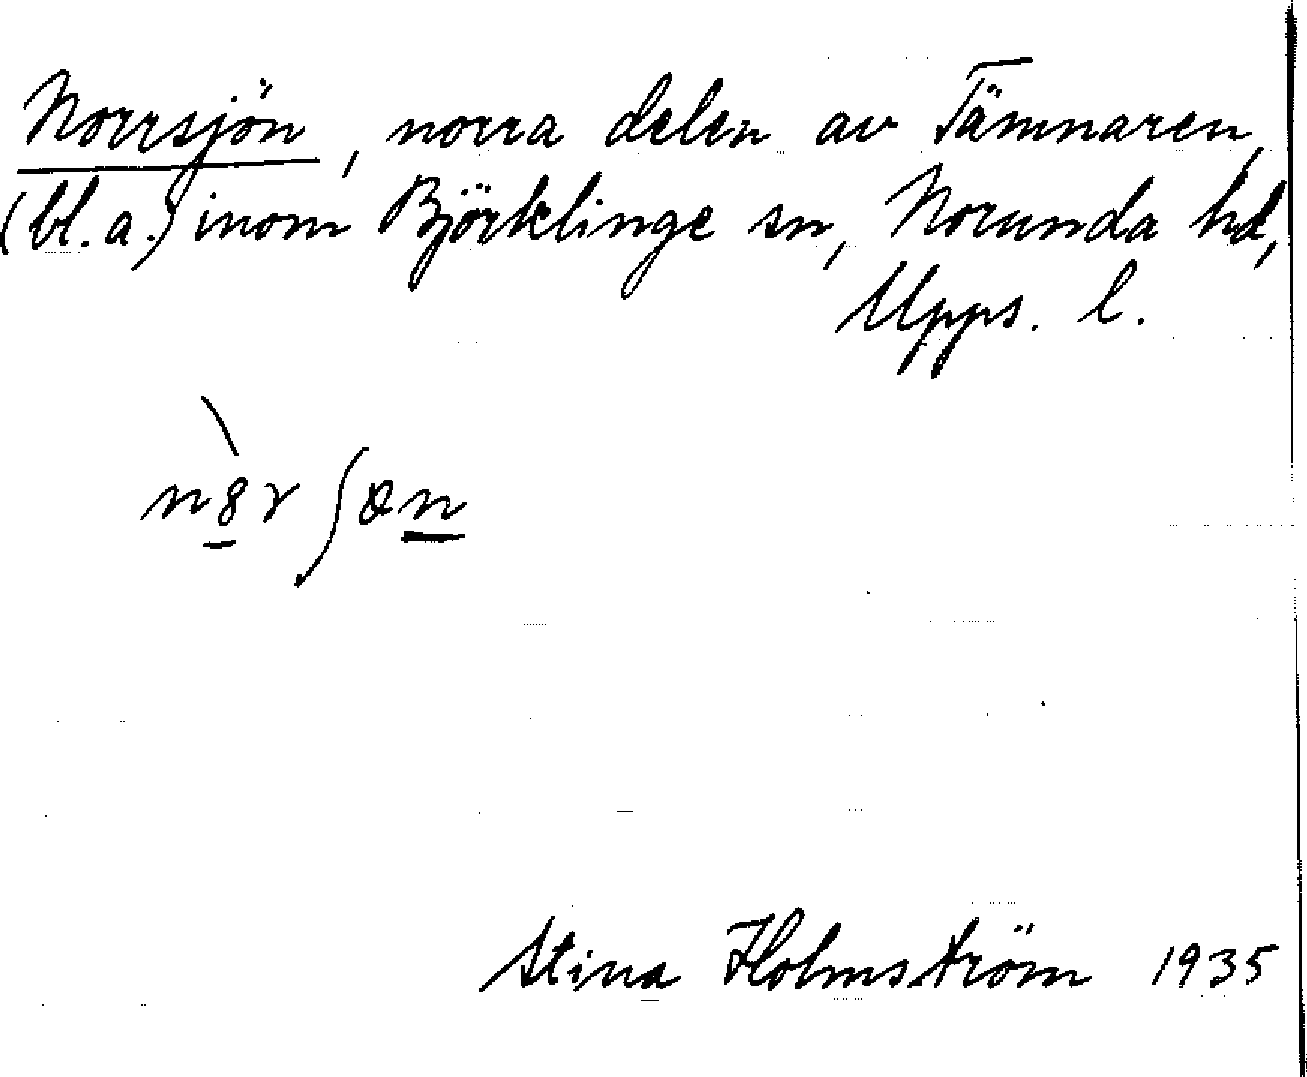 Norrsjön, norra delen av Tämnaren,
(bl.a.) inom Björklinge sn, Norunda hd,
Upps. l.
Stina Holmström 1935